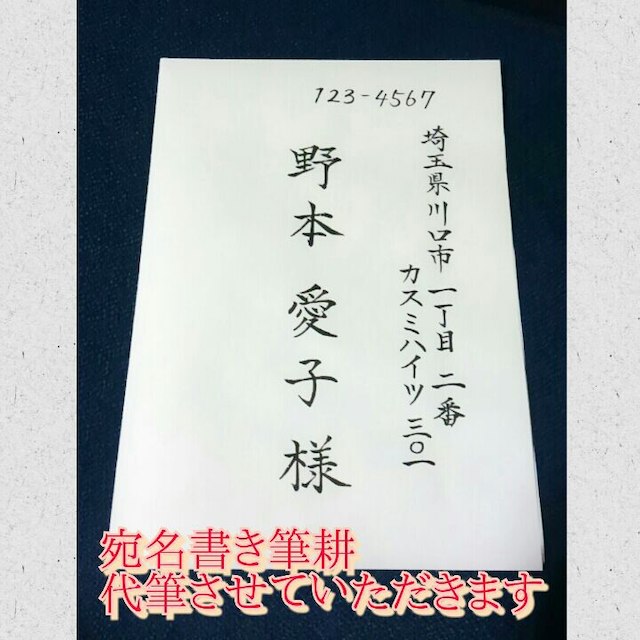 123-4567
埼玉県川口市一丁目二番
カスミハイツ三〇一
野本愛子様
宛名書き筆耕
代筆させていただきます